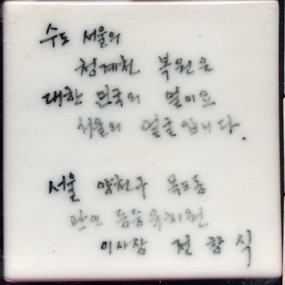 수도 서울의
청계천 복원은
대한민국의 얼이요
서울의 얼굴입니다.
서울 양천구 목2동
이사장 전창식